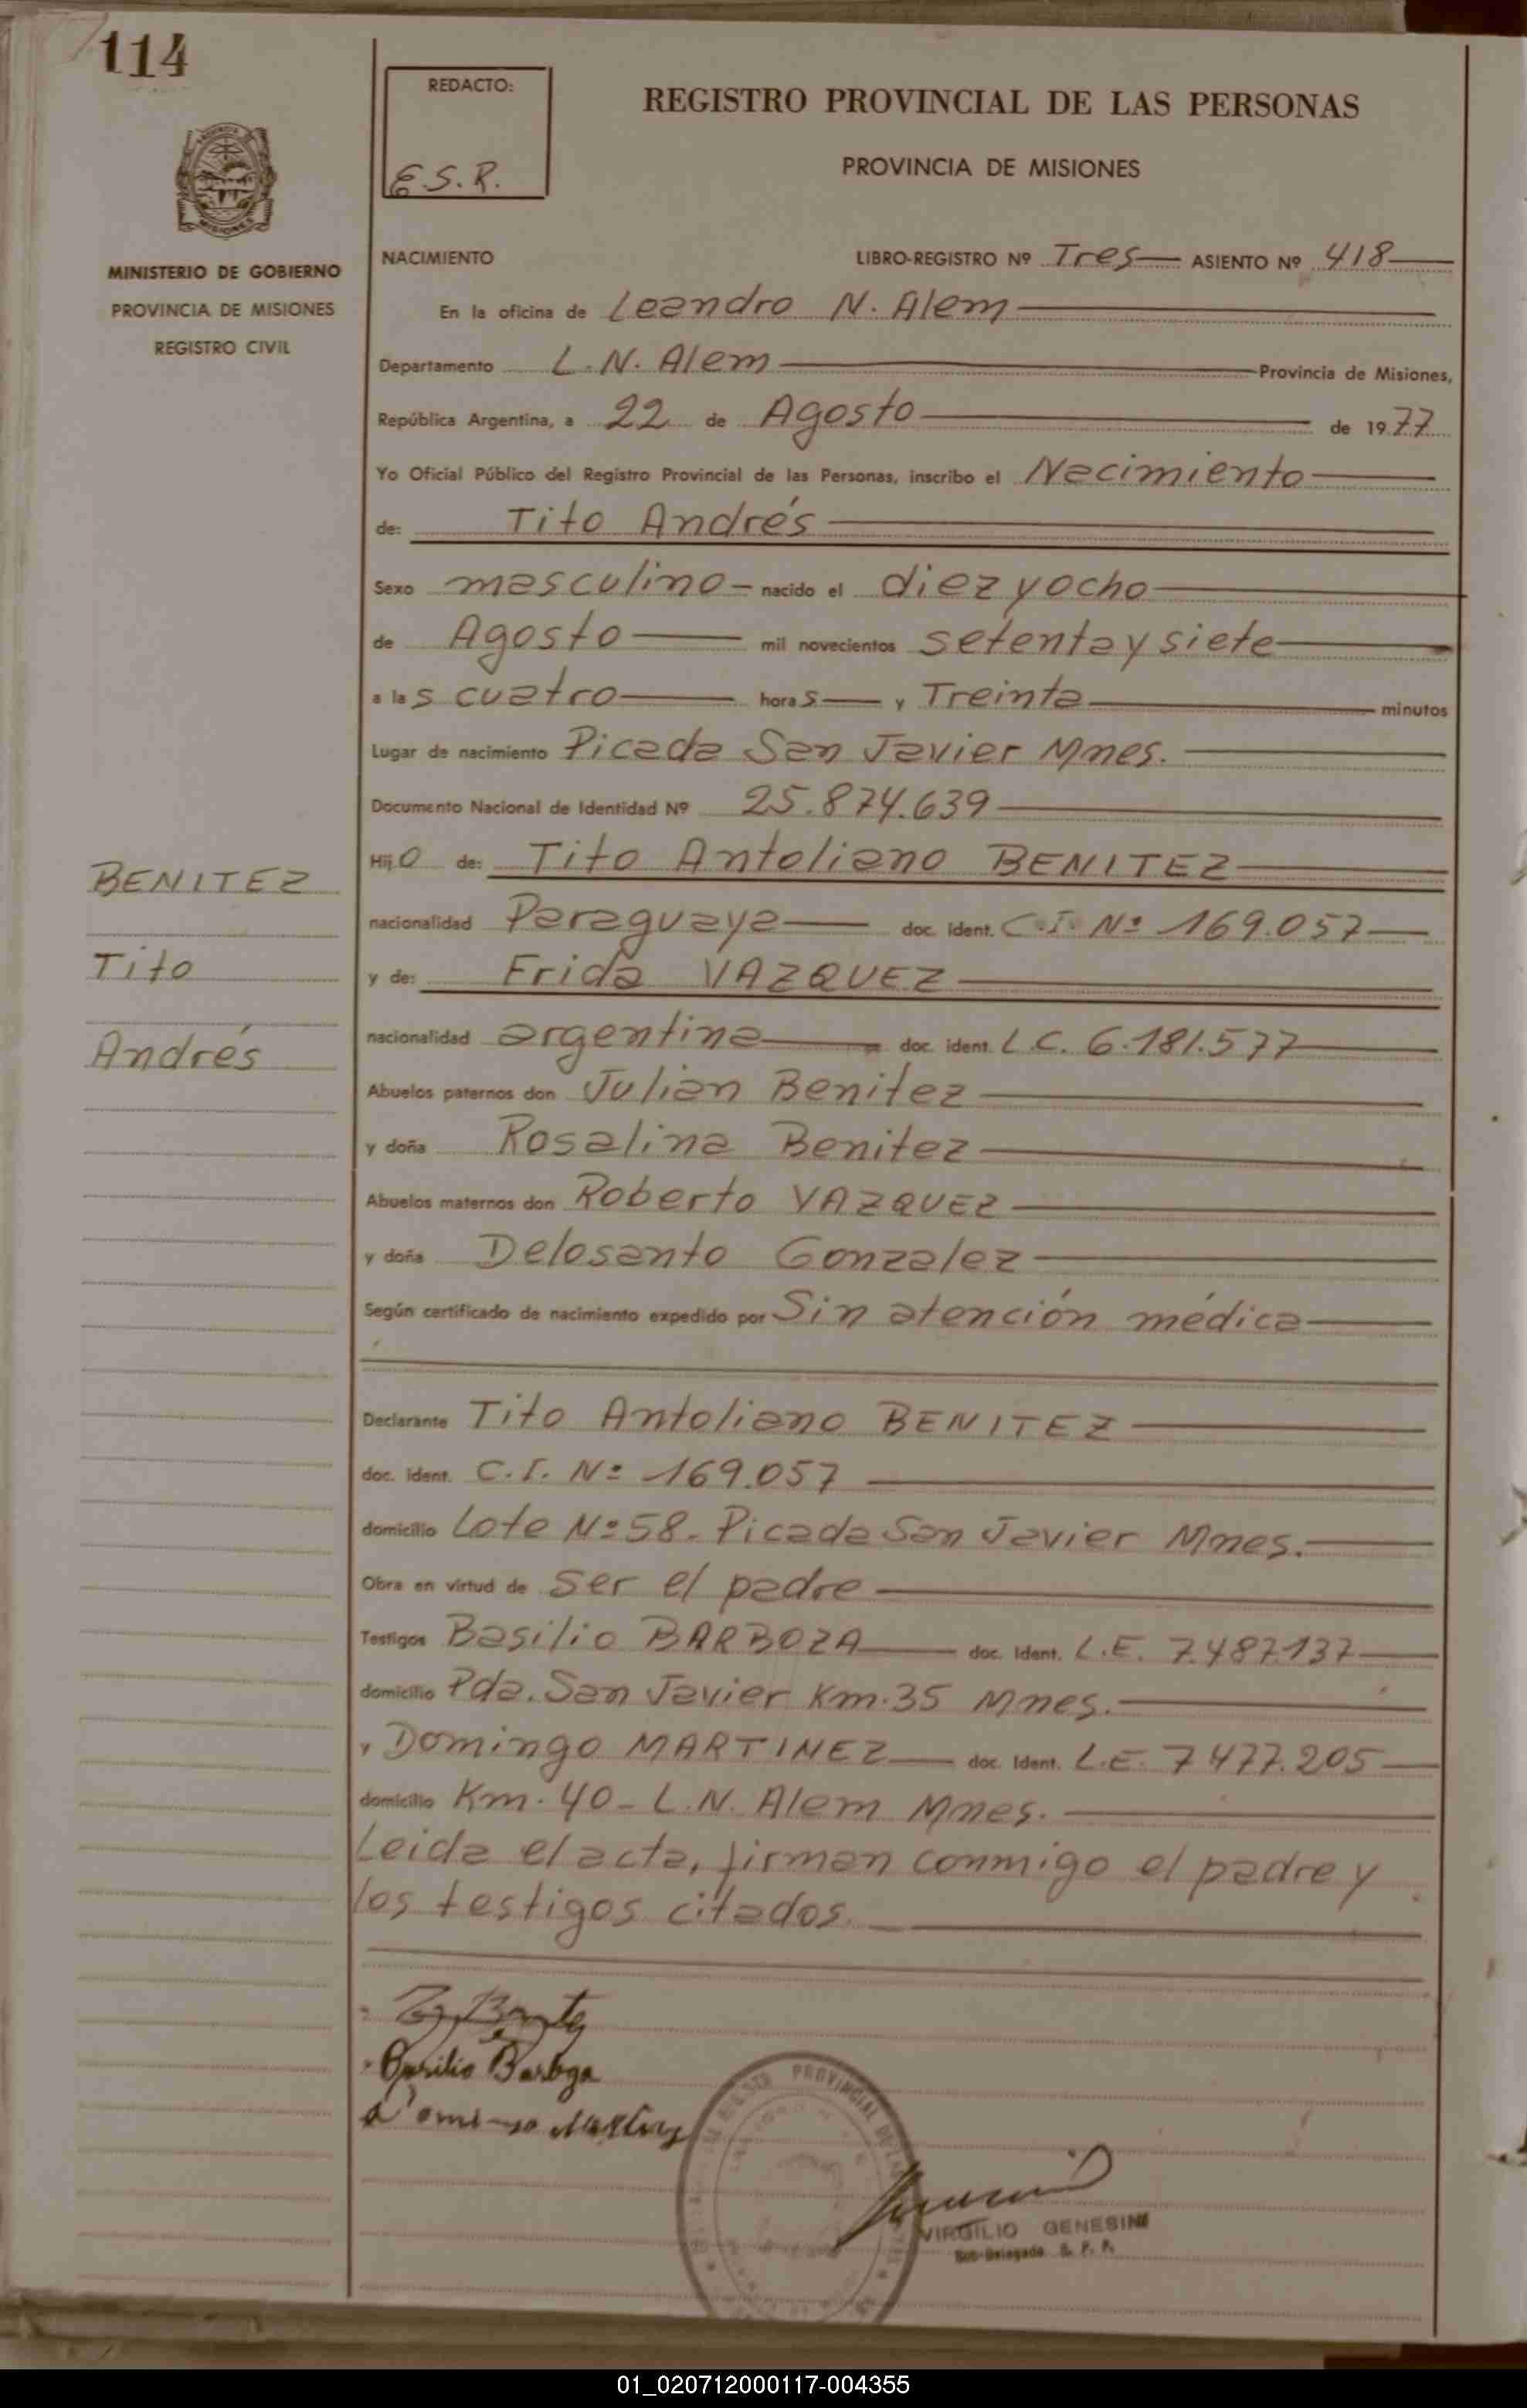 114
REDACTO:
E.S.R.
REGISTRO PROVINCIAL DE LAS PERSONAS
PROVINCIA DE MISIONES
MISIONES
MINISTERIO DE GOBIERNO
PROVINCIA DE MISIONES
REGISTRO CIVIL
NACIMIENTO LIBRO-REGISTRO Nº Tres ASIENTO Nº 418
En la oficina de Leandro N. Alem
Departamento L.N. Alem Provincia de Misiones,
República Argentina, a 22 de Agosto de 1977
Yo Oficial Público del Registro Provincial de las Personas, inscribo el Nacimiento
de: Tito Andrés
Sexo masculino nacido el diez y ocho
de Agosto mil novecientos setenta y siete
a las cuatro horas y Treinta minutos
Lugar de nacimiento Picada San Javier Mnes.
Documento Nacional de Identidad Nº 25.874.639
Hijo de: Tito Antoliano BENITEZ
nacionalidad Paraguaya doc. ident. C.I. Nº 169.057
y de: Frida VAZQUEZ
nacionalidad argentina doc. ident. L.C. 6.181.577
Abuelos paternos don Julian Benitez
y doña Rosalina Benitez
Abuelos maternos don Roberto VAZQUEZ
y doña Delosanto Gonzalez
Según certificado de nacimiento expedido por Sin atención médica
Declarante Tito Antoliano BENITEZ
doc. ident. C.I. Nº 169.057
domicilio Lote Nº 58. Picada San Javier Mnes.
Obra en virtud de ser el padre
Testigos Basilio BARBOZA doc. ident. L.E. 7.487.137
domicilio Pda. San Javier Km. 35 Mnes.
y Domingo MARTINEZ doc. ident. L.E. 7.477.205
domicilio Km. 40 - L.N. Alem Mnes.
Leida el acta, firman conmigo el padre y
los testigos citados.
BENITEZ
Tito
Andrés
PROVINCIAL
VIRGILIO GENESINI
Sub-Delegado
01_020712000117-004355